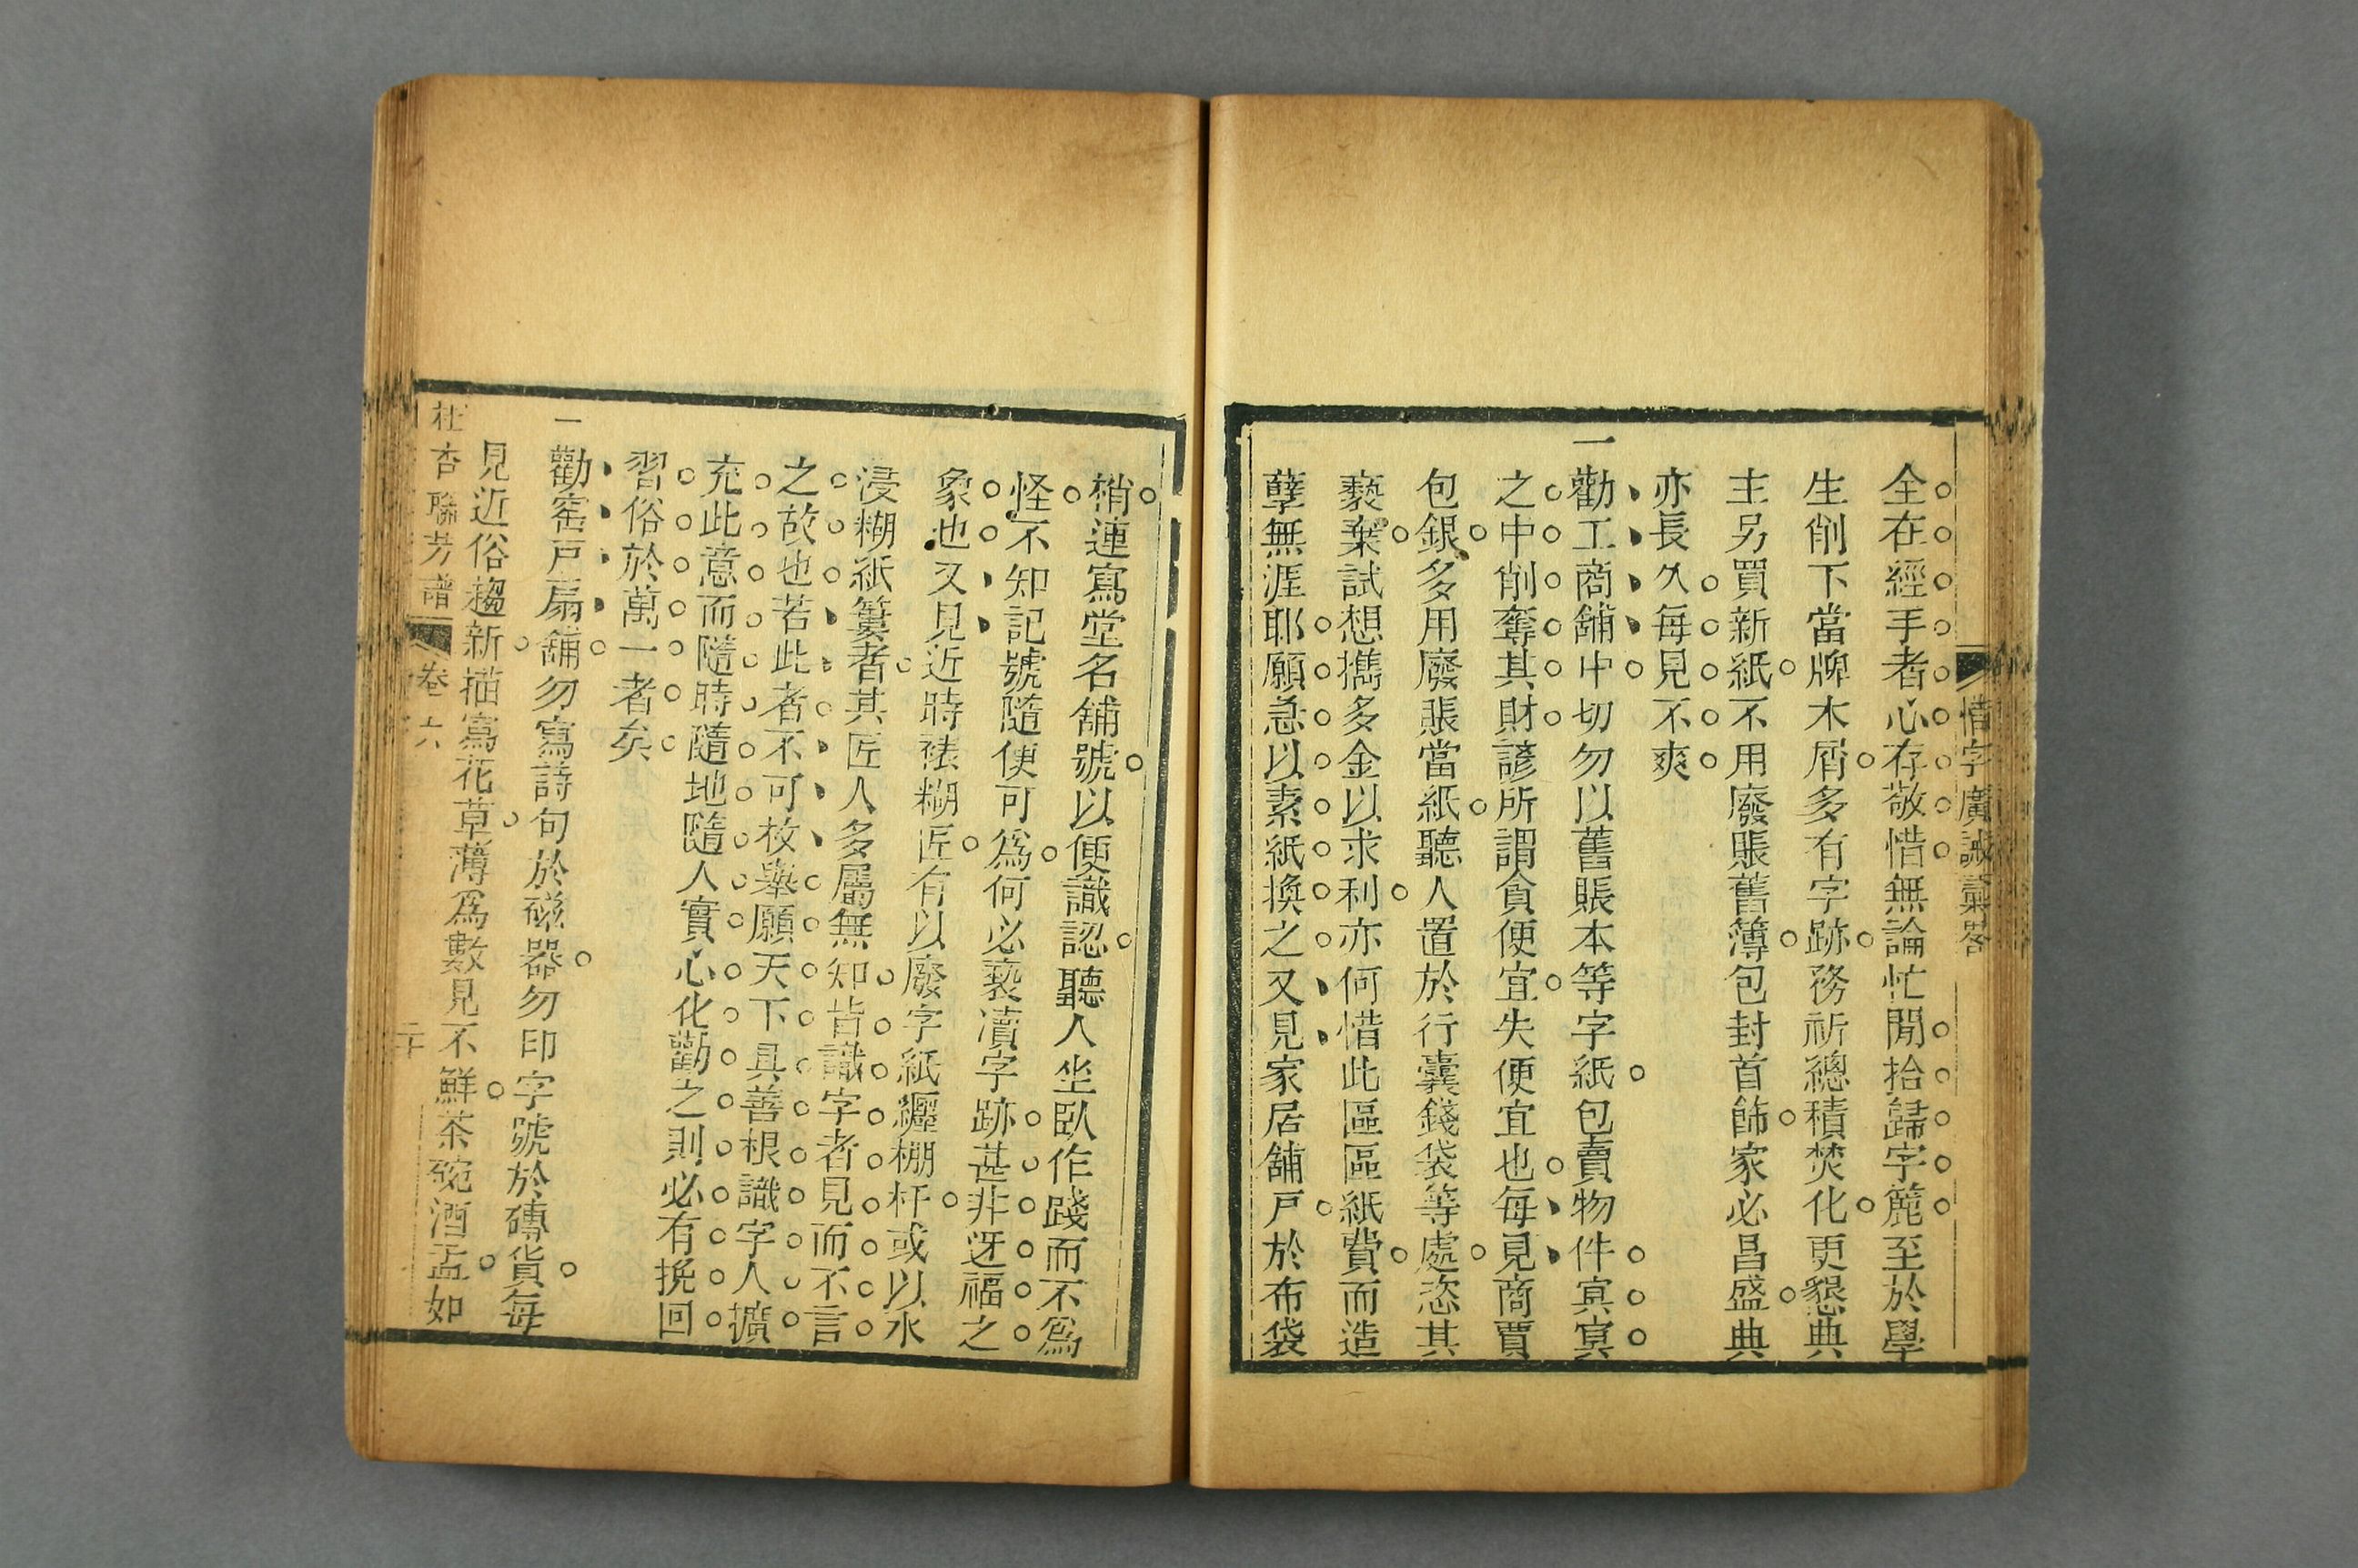 惜字廣誡
全在經手者心存敬惜無論忙閒拾歸字簏至於學
生削下當牌木屑多有字跡務祈總積焚化更懇典
主另買新紙不用廢賬舊簿包封首飾家必昌盛典
亦長久每見不爽
一勸工商舖中切勿以舊賬本等字紙包賣物件冥冥
之中削奪其財諺所謂貪便宜失便宜也每見商賈
包銀多用廢賬當紙聽人置於行囊錢袋等處恣其
褻棄試想攜多金以求利亦何惜此區區紙費而造
孽無涯耶願急以素紙換之又見家居舖戸於布袋
梢連寫堂名舖號以便識認聽人坐臥作踐而不爲
怪不知記號隨便可爲何必褻瀆字跡甚非迓福之
象也又見近時裱糊匠有以廢字紙纒棚杆或以水
浸糊紙簍者其匠人多屬無知皆識字者見而不言
之故也若此者不可枚舉願天下具善根識字人擴
充此意而隨時隨地隨人實心化勸之則必有挽回
習俗於萬一者矣
一勸窰戸扇舖勿寫詩句於磁器勿印字號於磚貨每
見近俗趨新描寫花草薄爲數見不鮮茶碗酒盂如
杜杏聯芳譜 卷六 二十